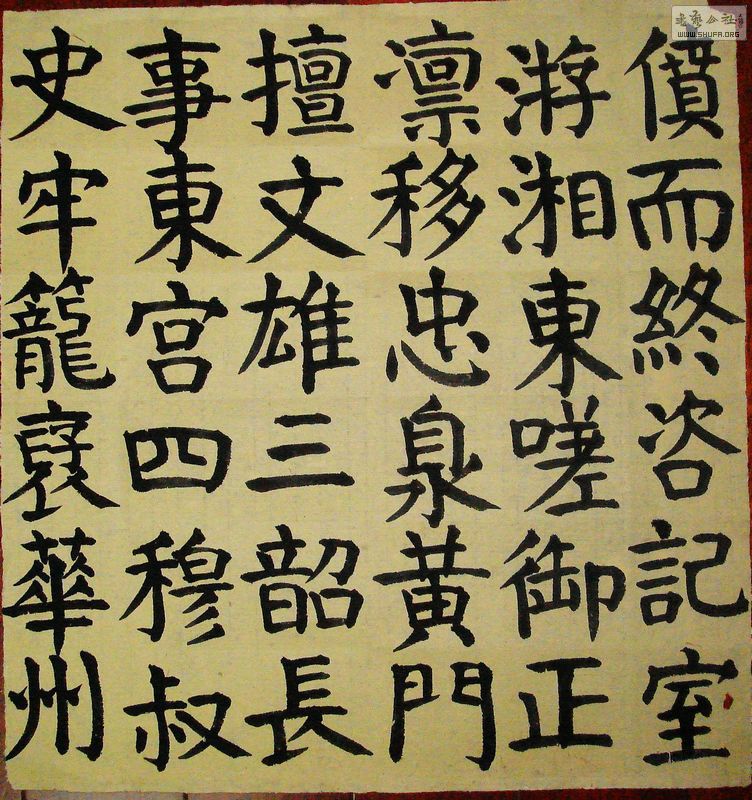 僨而終咨記室
游湘東嗟御正
凛移忠泉黃門
擅文雄三韶長
事東宮四穆叔
史牢籠裦華州
書藝公社
WWW.SHUFA.ORG